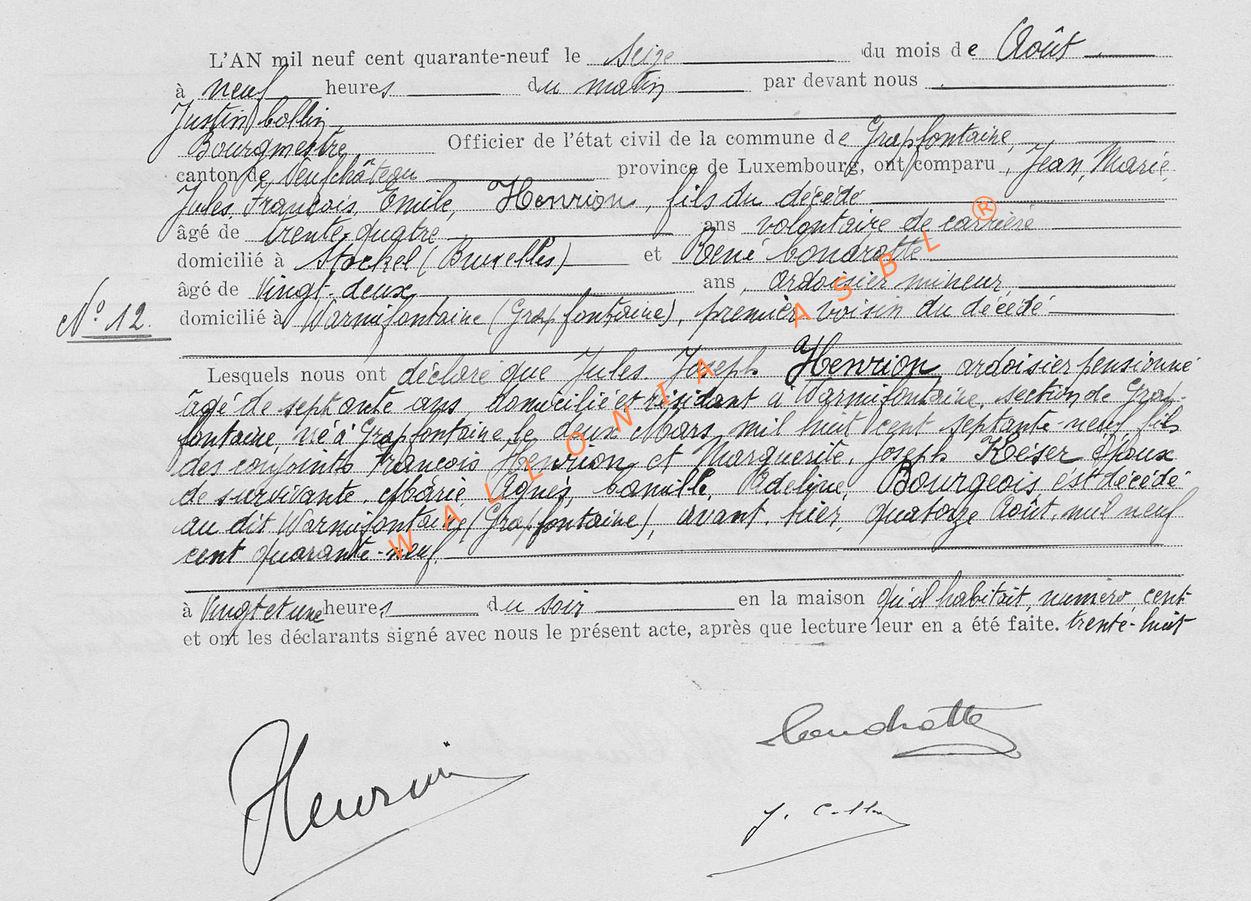 L'AN mil neuf cent quarante-neuf le seize du mois de Août
à neuf heures du matin par devant nous
Justin Collin,
Bourgmestre, Officier de l'état civil de la commune de Grapfontaine,
canton de Neufchâteau province de Luxembourg, ont comparu, Jean, Marie,
Jules, François, Emile, Henrion, fils du décédé
âgé de trente-quatre ans volontaire de carrière
domicilié à Stockel (Bruxelles) et René
âgé de vingt-deux ans, ardoisier mineur,
No. 12. domicilié à Warmifontaine (Grapfontaine), premier voisin du décédé
Lesquels nous ont déclaré que Jules Joseph Henrion ardoisier pensionné
âgé de septante ans, domicilié et résidant à Warmifontaine, section de Grap-
fontaine, né à Grapfontaine le deux Mars mil huit cent septante-neuf fils
des conjoints François Henrion et Marguerite, Joseph Késer époux
de survivante Marie Agnès, Camille, Adeline, Bourgeois est décédé
au dit Warmifontaine (Grapfontaine), avant-hier, quatorze Août mil neuf
cent quarante-neuf.
à vingt et une heures du soir en la maison qu'il habitait, numéro, cent
et ont les déclarants signé avec nous le présent acte, après que lecture leur en a été faite. trente-huit
Henrion
J. Collin
WALLONIA ASBL ®